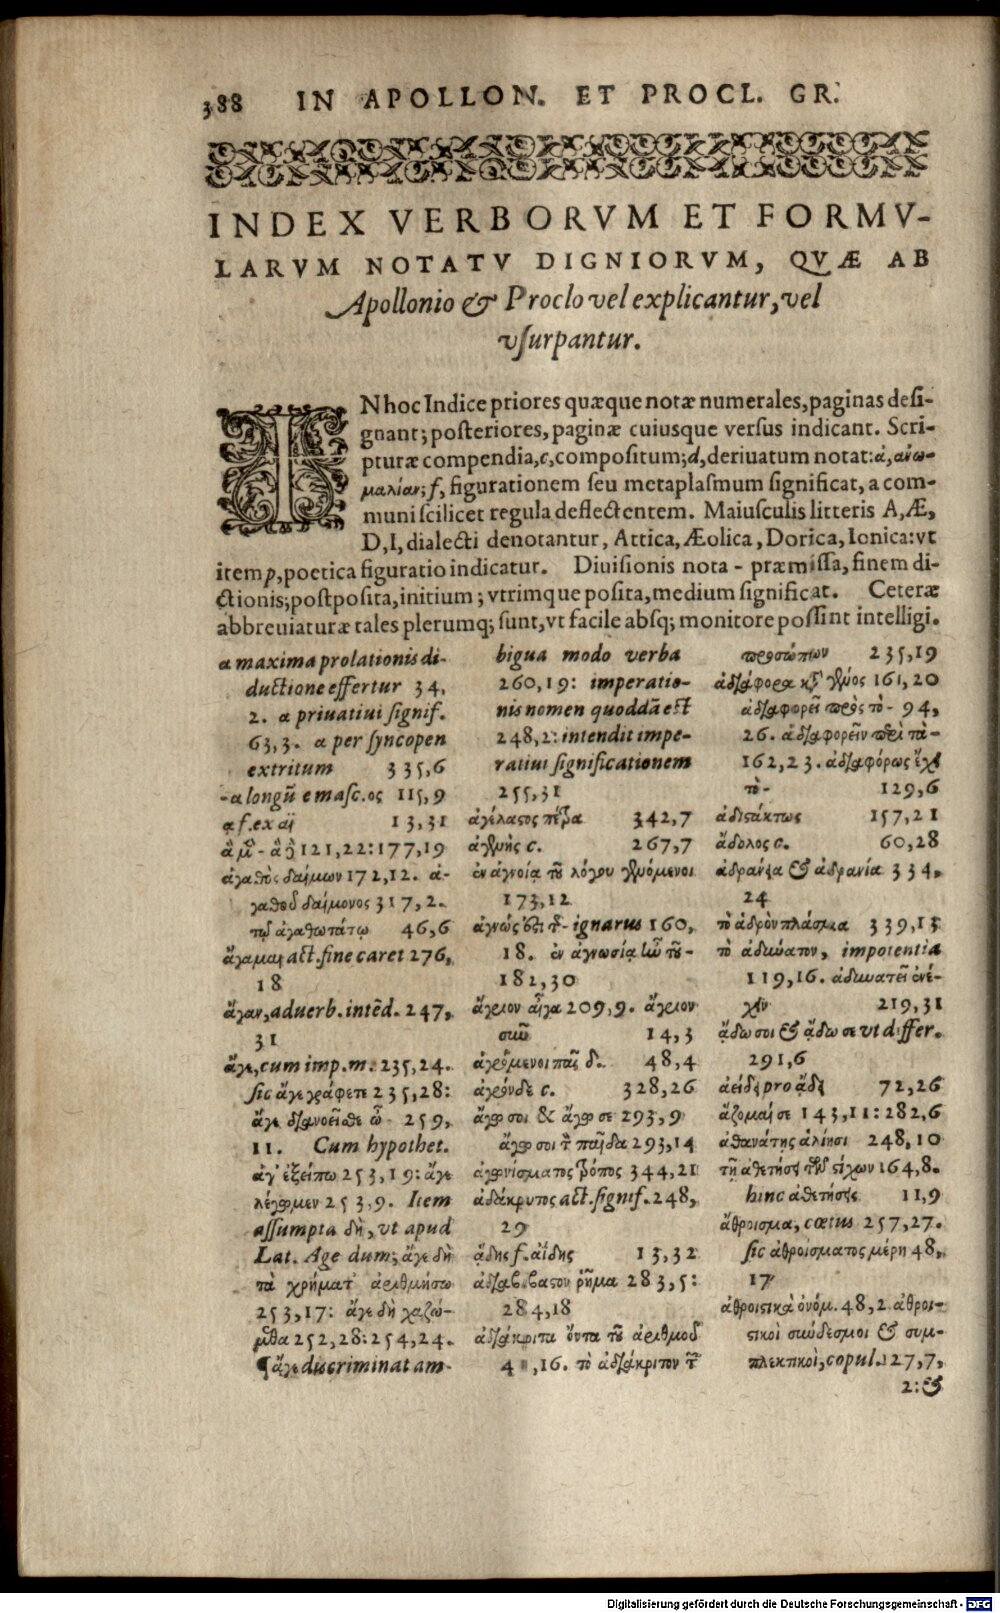 388 IN APOLLON. ET PROCL. GR.
INDEX VERBORVM ET FORMV-
LARVM NOTATV DIGNIORVM, QVÆ AB
Apollonio & Proclo vel explicantur, vel
vſurpantur.
IN hoc Indice priores quæque notæ numerales, paginas deſi-
gnant; poſteriores, paginæ cuiusque verſus indicant. Scri-
pturæ compendia, c, compoſitum; d, deriuatum notat: ἀ, ἀνω-
μαλίαν; f, figurationem ſeu metaplaſmum ſignificat, a com-
muni ſcilicet regula deflectentem. Maiuſculis litteris A, Æ,
D, I, dialecti denotantur, Attica, Æolica, Dorica, Ionica: vt
item p, poetica figuratio indicatur. Diuiſionis nota - præmiſſa, finem di-
ctionis; poſtpoſita, initium; vtrimque poſita, medium ſignificat. Ceteræ
abbreuiaturæ tales plerumq; ſunt, vt facile abſq; monitore poſſint intelligi.
α maxima prolationis di-
ductione effertur 34,
2. α priuatiui ſignif.
63,3. α per ſyncopen
extritum 335,6
-α longũ e maſc. ος 115,9
ᾳ f. ex αϊ 13,31
121,22: 177,19
ἀγαθὸς δαίμων 172,12. ἀ-
γαθοῦ δαίμονος 317,2.
τῷ ἀγαθωτάτῳ 46,6
ἄγαμαι act. fine caret 276,
18
ἄγαν, aduerb. intẽd. 247,
31
ἄγε, cum imp. m. 235,24.
ſic ἄγε γράφετε 235,28:
ἄγε διανοεῖσθε ὦ 259,
11. Cum hypothet.
ἄγ' ἐξείπω 253,19: ἄγε
λέγωμεν 253,9. Item
aſſumpta δὴ, vt apud
Lat. Age dum; ἄγε δὴ
τὰ χρήματ' ἀριθμήσω
253,17: ἄγε δὴ χαζώ-
μεθα 252,28: 254,24.
¶ ἄγε diſcriminat am-
bigua modo verba
260,19: imperatio-
nis nomen quoddã eſt
248,2: intendit impe-
ratiui ſignificationem
255,31
ἀγέλαστος πέτρα 342,7
ἀγενὴς c. 267,7
ἐν ἀγνοίᾳ τοῦ λόγου γενόμενοι
173,12
ἀγνώς ἐστι - ignarus 160,
18. ἐν ἀγνωσίᾳ
182,30
ἄγριον αἶγα 209,9. ἄγριον
σιῦν 14,3
ἀγρόμενοι παῖς δ. 48,4
ἀγρόνδε c. 328,26
ἄγω σοι & ἄγω σε 293,9
ἄγω σοι τ̀ παῖδα 293,14
ἀγωνίσματος τρόπος 344,21
ἀδάκρυτος act. ſignif. 248,
29
ᾄδης f. ἀΐδης 13,32
ἀδιάβιβαστον ῥῆμα 283,5:
284,18
ἀδιάκριτα ὄντα τοῦ ἀριθμοῦ
,16. τὸ ἀδιάκριτον τ̀
προσώπων 235,19
ἀδιάφορα κτ̀ γένος 161,20
ἀδιαφορεῖ πρὸς τὸ - 94,
26. ἀδιαφορεῖν περὶ τὰ-
162,23. ἀδιαφόρως ἔχει
τὸ- 129,6
ἀδιστάκτως 157,21
ἄδολος c. 60,28
ἀδρανία & ἀδρανία 334,
24
τὸ ἁδρὸν πλάσμα 339,15
τὸ ἀδύνατον, impotentia
119,16. ἀδυνατεῖ ἐνέ-
χειν 219,31
ᾄδω σοι & ᾄδω σε vt differ.
291,6
ἀείδει pro ᾄδει 72,26
ἅζομαί σε 143,11: 282,6
ἀθανάτης ἁλίῃσι 248,10
τῇ ἀθετήσει τῶν στίχων 164,8.
hinc ἀθετήσεις 11,9
ἄθροισμα, cœtus 257,27.
ſic ἀθροίσματος μέρη 48,
17
ἀθροιστικὰ ὀνόμ. 48,2 ἀθροι-
στικοὶ σύνδεσμοι & συμ-
πλεκτικοὶ, copul. 127,7,
2: &
Digitalisierung gefördert durch die Deutsche Forschungsgemeinschaft - DFG